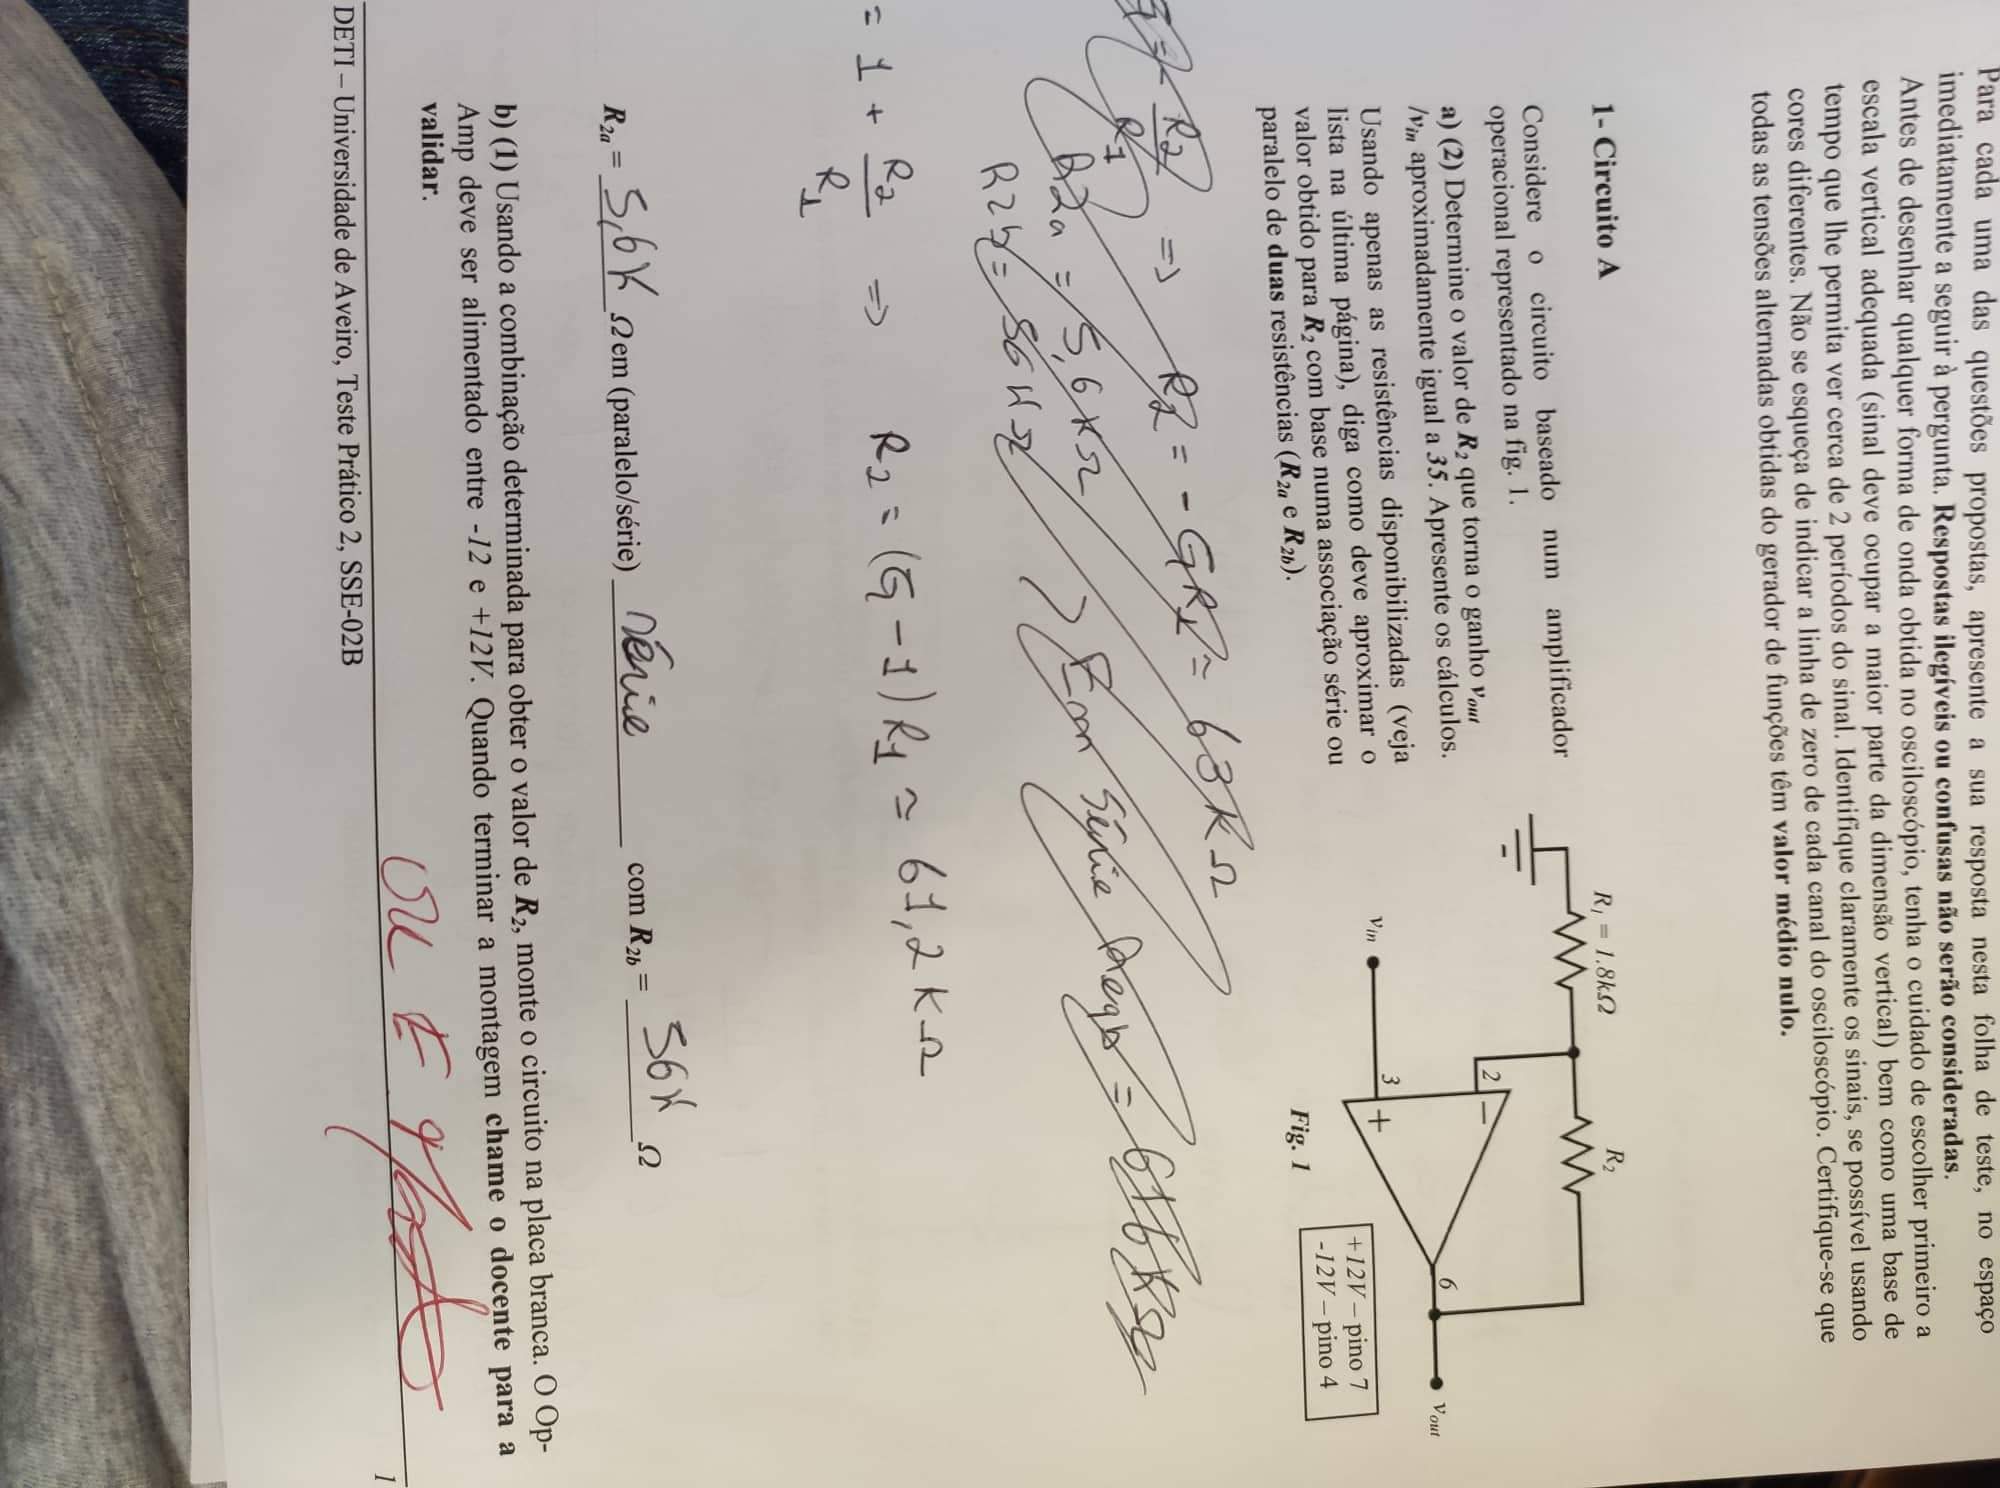 Para cada uma das questões propostas, apresente a sua resposta nesta folha de teste, no espaço
imediatamente a seguir à pergunta. Respostas ilegíveis ou confusas não serão consideradas.
Antes de desenhar qualquer forma de onda obtida no osciloscópio, tenha o cuidado de escolher primeiro a
escala vertical adequada (sinal deve ocupar a maior parte da dimensão vertical) bem como uma base de
tempo que lhe permita ver cerca de 2 períodos do sinal. Identifique claramente os sinais, se possível usando
cores diferentes. Não se esqueça de indicar a linha de zero de cada canal do osciloscópio. Certifique-se que
todas as tensões alternadas obtidas do gerador de funções têm valor médio nulo.
1- Circuito A
Considere o circuito baseado num amplificador
operacional representado na fig. 1.
a) (2) Determine o valor de R2 que torna o ganho vout
/vin aproximadamente igual a 35. Apresente os cálculos.
Usando apenas as resistências disponibilizadas (veja
lista na última página), diga como deve aproximar o
valor obtido para R2 com base numa associação série ou
paralelo de duas resistências (R2a e R2b).
R1 = 1.8kΩ
R2
2
−
6
vout
3
+
vin
+12V – pino 7
-12V – pino 4
Fig. 1
= - R2/R1 => R2 = - GR1 ≈ 63KΩ
R2a = 5,6KΩ
R2b = 56KΩ
Em Série = 616KΩ
= 1 + R2/R1 => R2 = (G-1)R1 ≈ 61,2KΩ
R2a = 5,6K Ω em (paralelo/série) série com R2b = 56K Ω
b) (1) Usando a combinação determinada para obter o valor de R2, monte o circuito na placa branca. O Op-
Amp deve ser alimentado entre -12 e +12V. Quando terminar a montagem chame o docente para a
validar.
1
DETI – Universidade de Aveiro, Teste Prático 2, SSE-02B